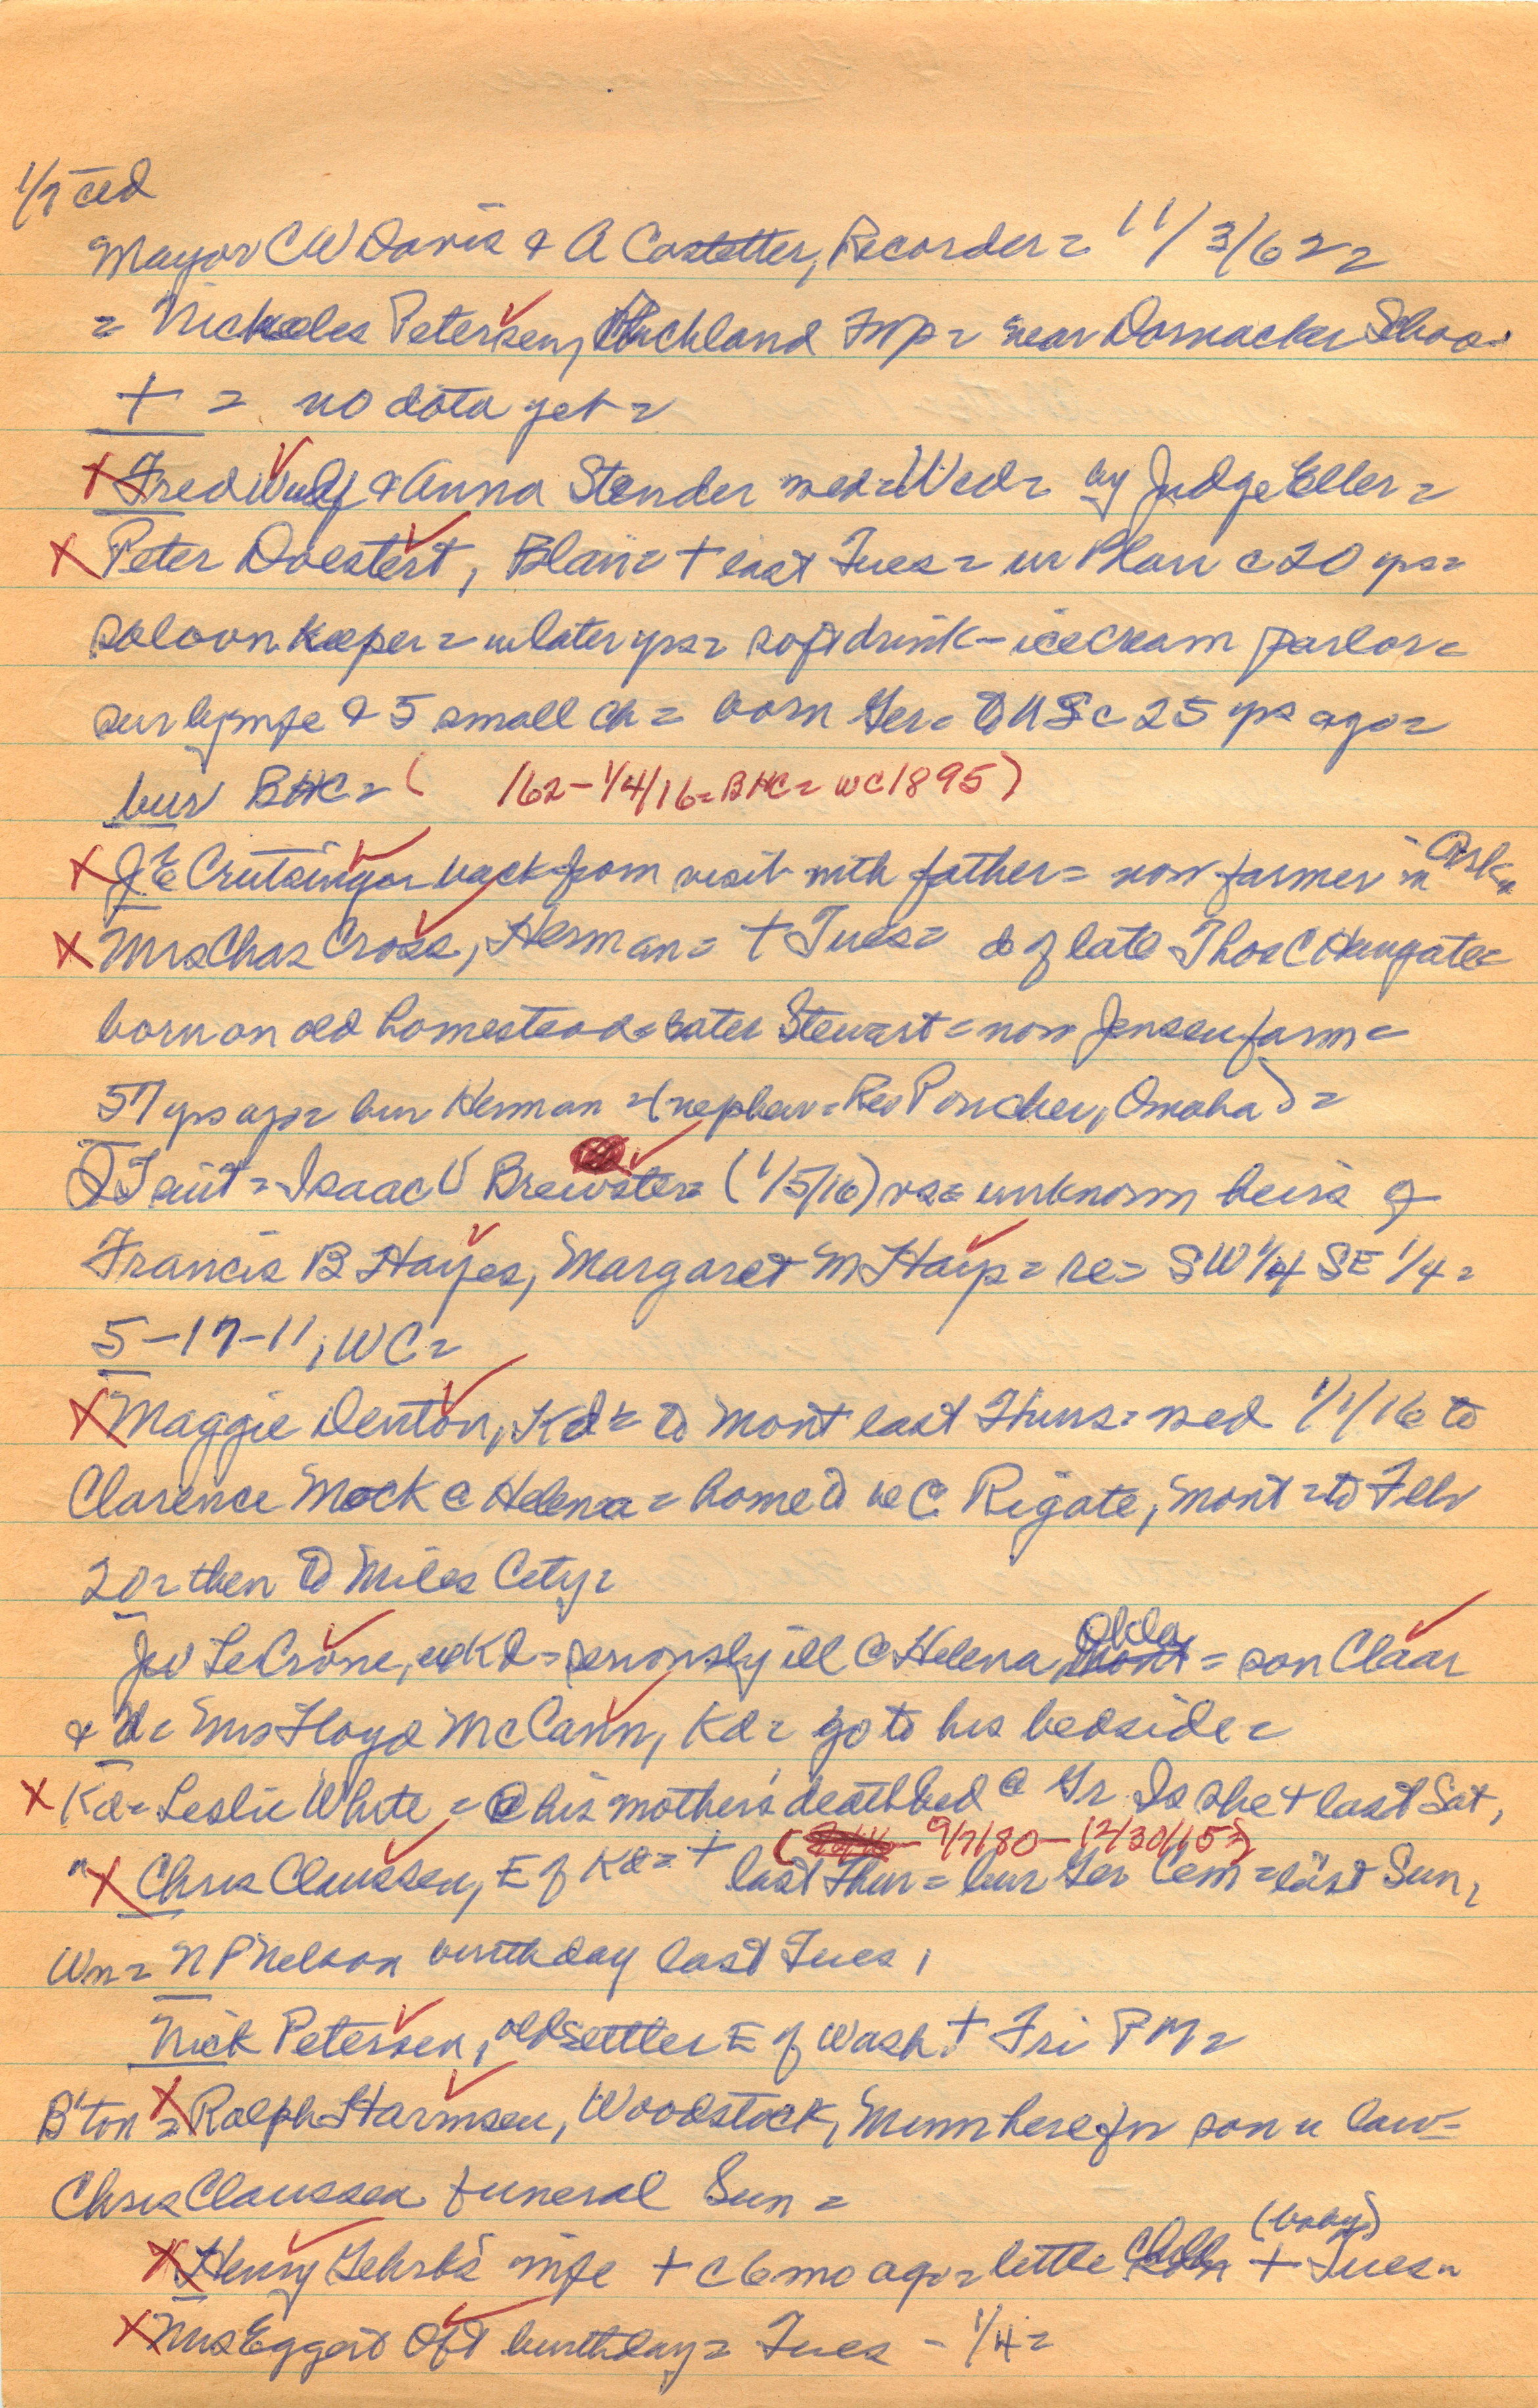 1/7 ced
Mayor C W Davis & A Castetter, Recorder = 11/3/62 =
= Nickoles Petersen, Richland Twp = near Dornacker School
+ = no data yet =
X Fred Wulf & Anna Stender med = Wed = by Judge Eller =
X Peter Doestert, Blair = + last Tues = in Blair c 20 yrs =
saloon keeper = in later yrs = soft drink - ice cream parlor =
sur by wife & 5 small ch = born Ger = to US c 25 yrs ago =
bur BHC = ( 162 - 1/4/16 = BHC = WC 1895)
X J E Crutsinger back from visit with father = now farmer in Ark =
X Mrs Chas Cross, Herman = + Tues = d of late Thos C Hungate =
born on old homestead = later Stewart = now Jensen farm =
57 yrs ago = bur Herman = (nephew = Rev Poucher, Omaha) =
QT suit = Isaac V Brewster = (1/5/16) vs = unknown heirs of
Francis B Hayes, Margaret M Hays = re = SW 1/4 SE 1/4 =
5-17-11, WC =
X Maggie Denton, Kd = to Mont last Thurs = med 1/1/16 to
Clarence Mock @ Helena = home to be @ Rigate, Mont = to Feb
20 = then to Miles City =
JW LeCrone, Kd = seriously ill @ Helena Okla = son Claar
& d = Mrs Floyd McCann, Kd = go to his bedside =
X Kd = Leslie White = @ his mother's deathbed @ Gr Is she + last Sat,
(9/7/80 - 12/30/15)
" X Chris Claussen, E of Kd = + last Thur = bur Ger Cem = last Sun,
Wn = N P Nelson birthday last Tues,
Nick Petersen, old settler E of Wash + Fri PM =
B'ton = X Ralph Harmsen, Woodstock, Minn here for son in law =
Chris Claussen funeral Sun =
(baby)
X Henry Gehrk's wife + c 6 mo ago = little child + Tues =
X Mrs Eggert Oft birthday = Tues - 1/4 =